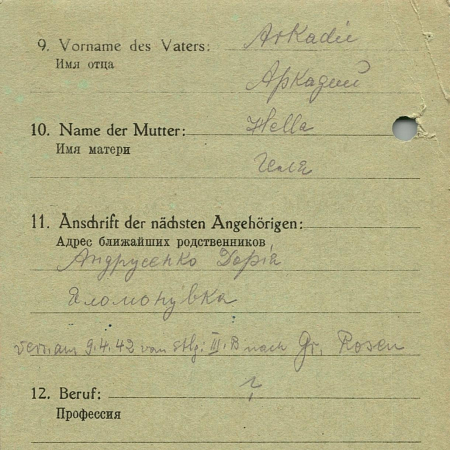 9. Vorname des Vaters: Arkadie
Имя отца Аркадий
10. Name der Mutter: Hella
Имя матери Геля
11. Anschrift der nächsten Angehörigen:
Адрес ближайших родственников
Андрусенко Дорія
vers. am 9.4.42 von Stlg. III. B nach Gr. Rosen
12. Beruf: ?
Профессия